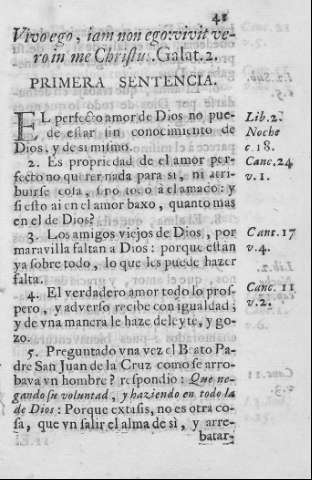 41
Vivo ego, iam non ego: vivit ve-
ro in me Christu. Galat. 2.
PRIMERA SENTENCIA.
EL perfecto amor de Dios no pue-
de estar sin conocimiento de
Dios, y de si mismo.
Lib. 2.
Noche
c 18.
2. Es propriedad de el amor per-
fecto no querer nada para si, ni atri-
buirse cosa, sino todo à el amado: y
si esto ai en el amor baxo, quanto mas
en el de Dios?
Canc. 24
v. 1.
3. Los amigos viejos de Dios, por
maravilla faltan a Dios: porque estan
ya sobre todo, lo que les puede hazer
falta.
Canc. 17
v. 4.
4. El verdadero amor todo lo pros-
pero, y adverso recibe con igualdad;
y de vna manera le haze deleyte, y go-
zo.
Canc. 11
v. 2.
5. Preguntado vna vez el Beato Pa-
dre San Juan de la Cruz como se arro-
bava vn hombre? respondio: Que ne-
gando su voluntad, y haziendo en todo la
de Dios: Porque extasis, no es otra co-
sa, que vn salir el alma de sì, y arre-
batar-